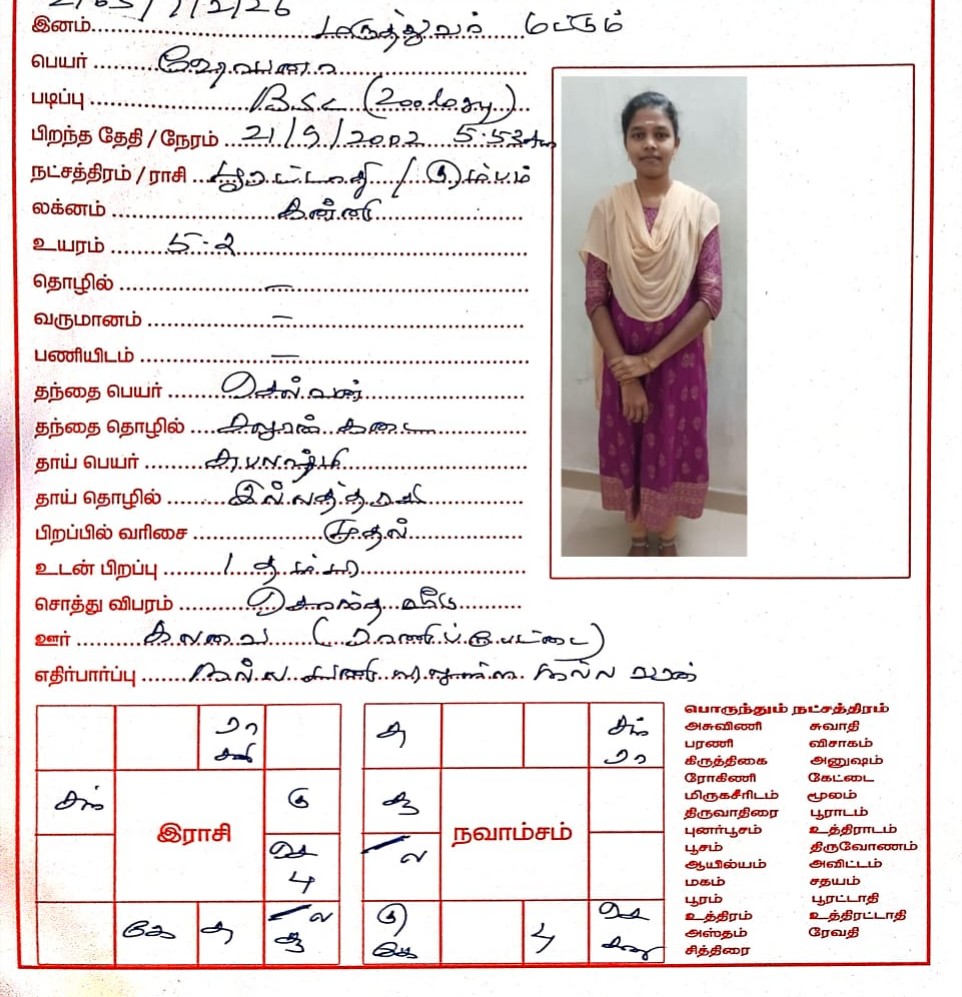 இனம் மருத்துவர் மட்டும்
பெயர்
படிப்பு B.Sc (Zoology)
பிறந்த தேதி / நேரம் 21/9/2002 5:53Am
நட்சத்திரம் / ராசி பூரட்டாதி / கும்பம்
லக்னம் கன்னி
உயரம் 5.2
தொழில் —
வருமானம் —
பணியிடம் —
தந்தை பெயர் செல்வன்
தந்தை தொழில் சலூன் கடை
தாய் பெயர்
தாய் தொழில் இல்லத்தரசி
பிறப்பில் வரிசை முதல்
உடன் பிறப்பு 1 தம்பி
சொத்து விபரம் சொந்த வீடு
ஊர் கலவை (ராணிப்பேட்டை)
எதிர்பார்ப்பு நல்ல பணி நல்ல வரன்
ரா
சனி
சந்
கு
இராசி
செ
பு
கே சு ல
சு
சந்
ரா
நவாம்சம்
ல
கு
கே
பு
செ
சனி
பொருந்தும் நட்சத்திரம்
அசுவிணி சுவாதி
பரணி விசாகம்
கிருத்திகை அனுஷம்
ரோகிணி கேட்டை
மிருகசீரிடம் மூலம்
திருவாதிரை பூராடம்
புனர்பூசம் உத்திராடம்
பூசம் திருவோணம்
ஆயில்யம் அவிட்டம்
மகம் சதயம்
பூரம் பூரட்டாதி
உத்திரம் உத்திரட்டாதி
அஸ்தம் ரேவதி
சித்திரை